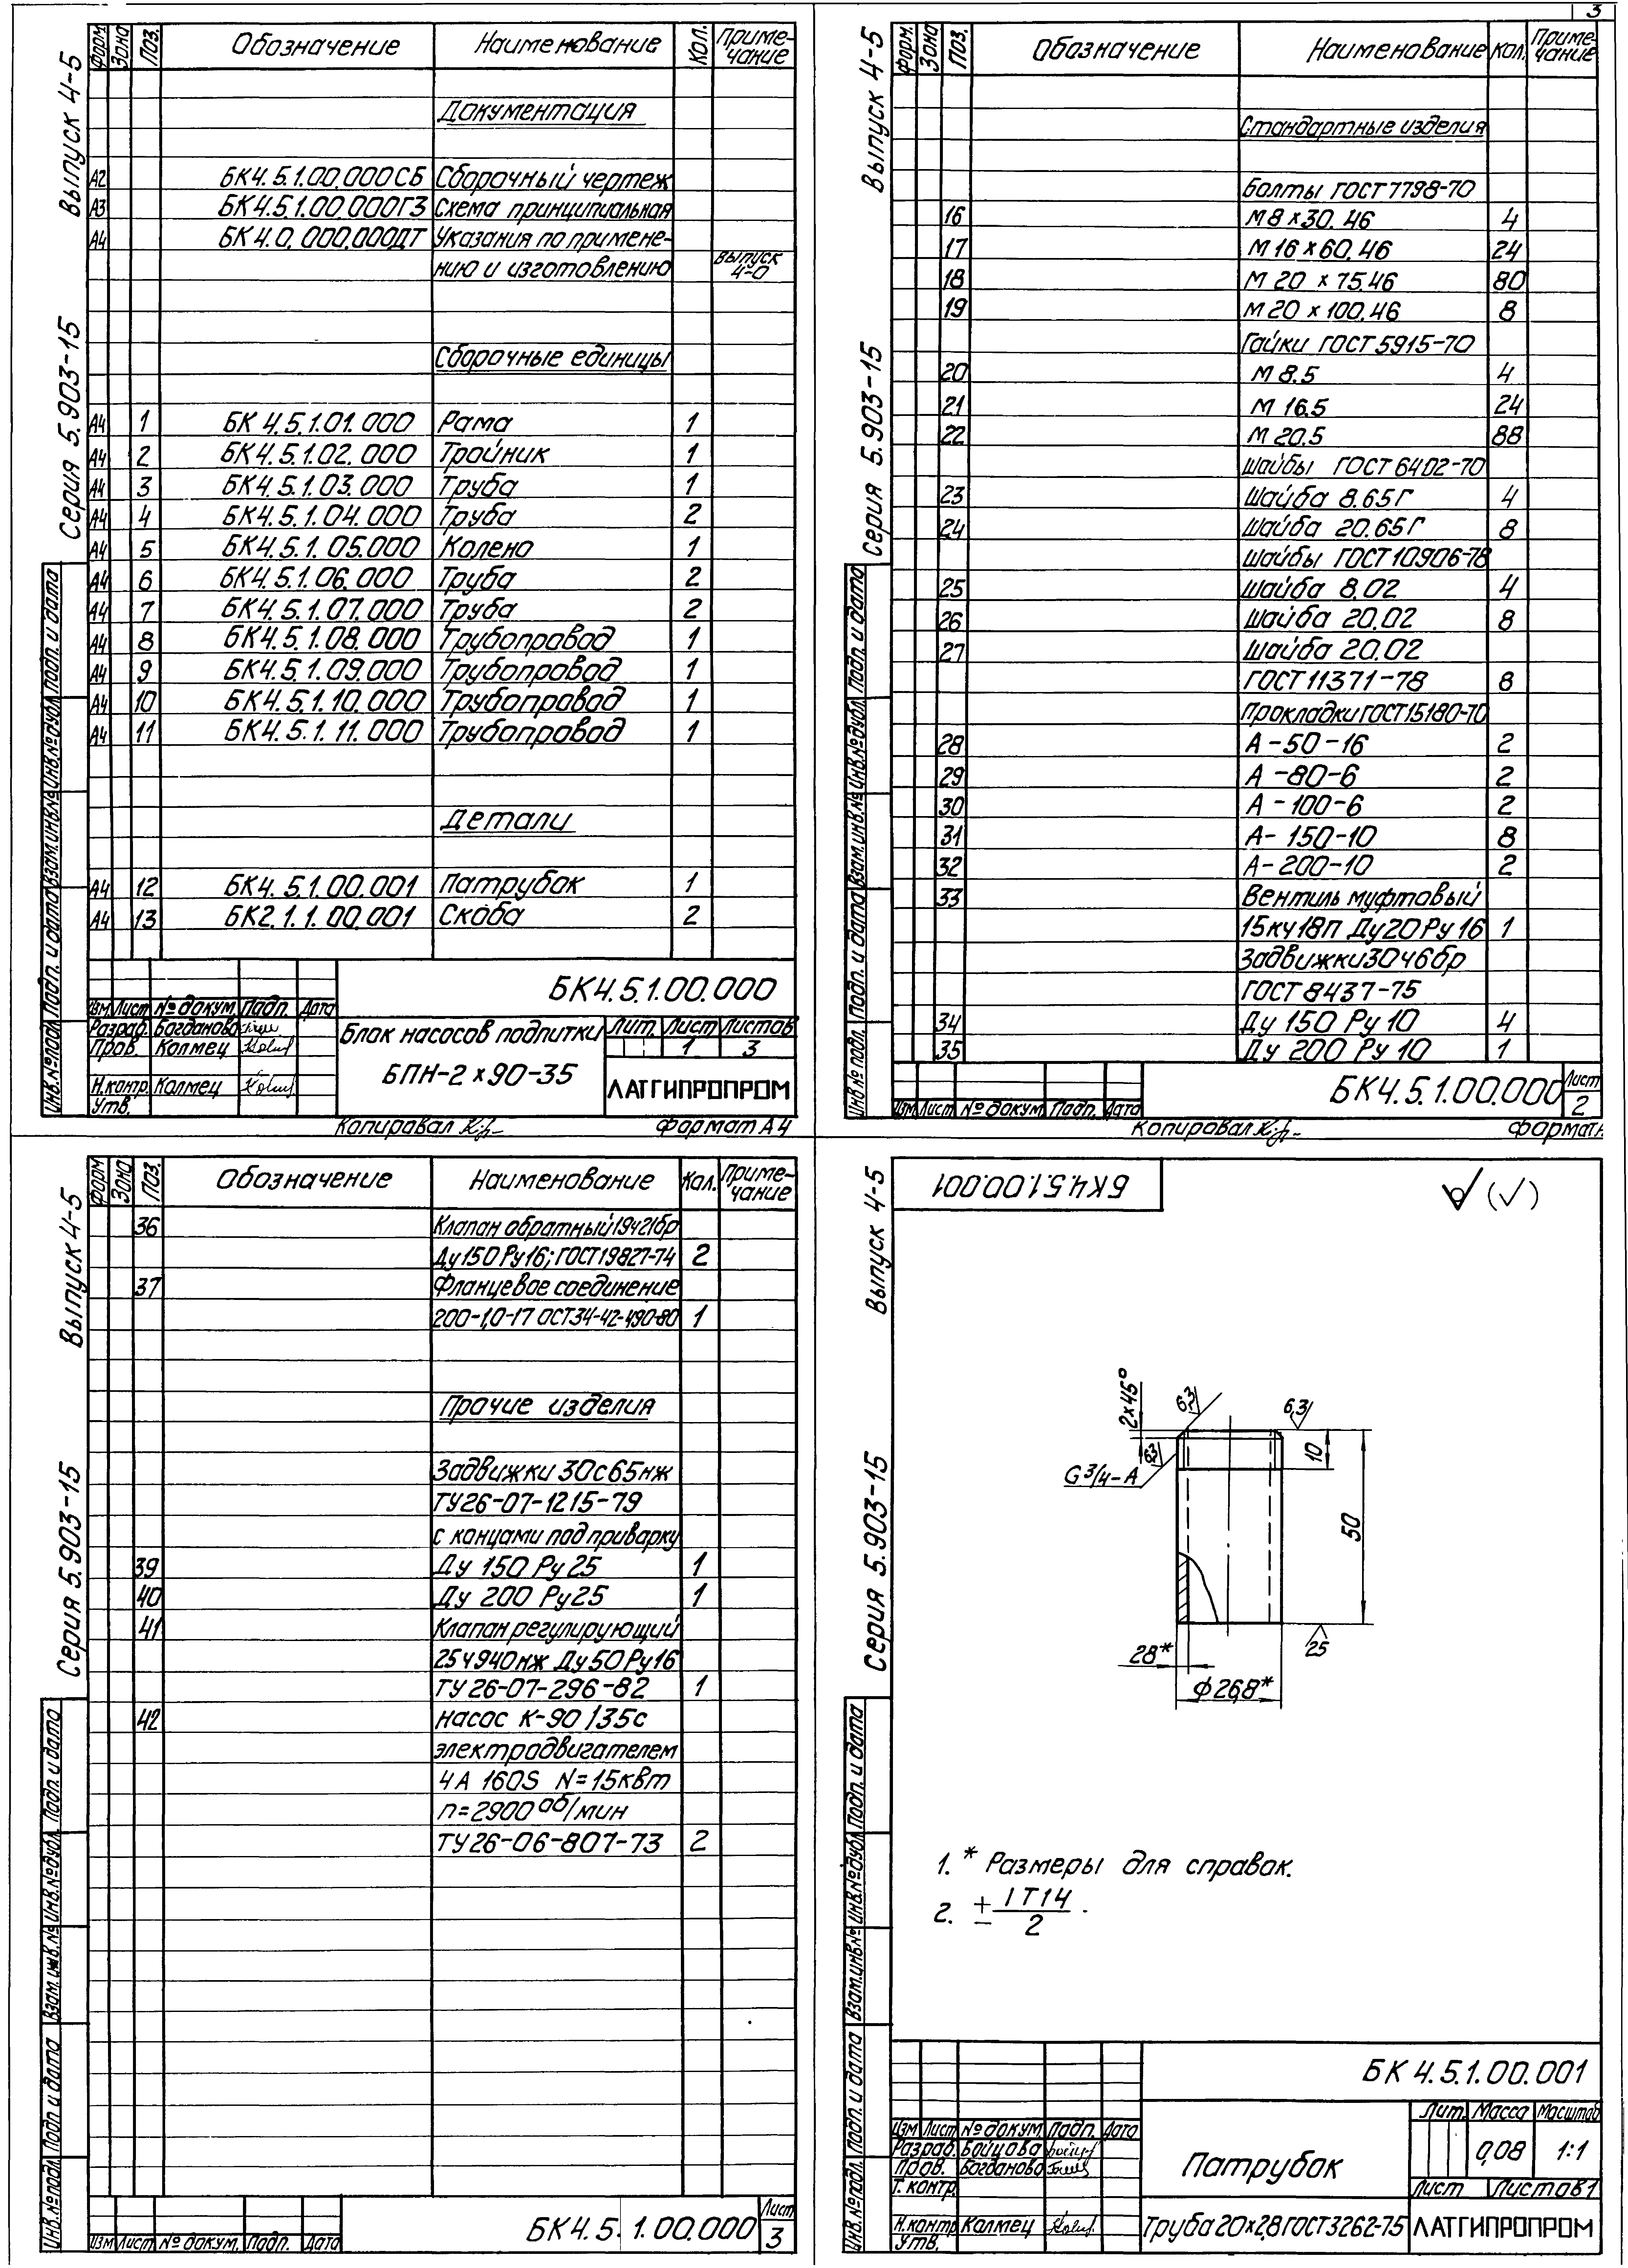 3
Выпуск 4-5
Серия 5.903-15
Форм. Зона Поз. Обозначение Наименование Кол. Примечание
Документация
А2 БК4.5.1.00.000СБ Сборочный чертеж
А3 БК4.5.1.00.000ГЗ Схема принципиальная
А4 БК4.0.000.000ДТ Указания по примене-
нию и изготовлению выпуск 4-0
Сборочные единицы
А4 1 БК 4.5.1.01.000 Рама 1
А4 2 БК4.5.1.02.000 Тройник 1
А4 3 БК4.5.1.03.000 Труба 1
А4 4 БК4.5.1.04.000 Труба 2
А4 5 БК4.5.1.05.000 Колено 1
А4 6 БК4.5.1.06.000 Труба 2
А4 7 БК4.5.1.07.000 Труба 2
А4 8 БК4.5.1.08.000 Трубопровод 1
А4 9 БК4.5.1.09.000 Трубопровод 1
А4 10 БК4.5.1.10.000 Трубопровод 1
А4 11 БК4.5.1.11.000 Трубопровод 1
Детали
А4 12 БК4.5.1.00.001 Патрубок 1
А4 13 БК2.1.1.00.001 Скоба 2
Инв.№ подл. Подп. и дата Взам.инв.№ Инв.№ дубл. Подп. и дата
БК4.5.1.00.000
Изм. Лист № докум. Подп. Дата
Разраб. Богданова
Пров. Колмец
Н.контр. Колмец
Утв.
Блок насосов подпитки
БПН-2×90-35
Лит. Лист Листов
1 3
ЛАТГИПРОПРОМ
Копировал Формат А4
Выпуск 4-5
Серия 5.903-15
Форм. Зона Поз. Обозначение Наименование Кол. Примечание
Стандартные изделия
Болты ГОСТ 7798-70
16 М8×30.46 4
17 М16×60.46 24
18 М 20 × 75.46 80
19 М20 × 100.46 8
Гайки ГОСТ 5915-70
20 М 8.5 4
21 М 16.5 24
22 М 20.5 88
Шайбы ГОСТ 6402-70
23 Шайба 8.65Г 4
24 Шайба 20.65Г 8
Шайбы ГОСТ 10906-78
25 Шайба 8.02 4
26 Шайба 20.02 8
27 Шайба 20.02
ГОСТ 11371-78 8
Прокладки ГОСТ 15180-70
28 А-50-16 2
29 А-80-6 2
30 А-100-6 2
31 А-150-10 8
32 А-200-10 2
33 Вентиль муфтовый
15кч18п Ду20 Ру 16 1
Задвижки 30ч6бр
ГОСТ 8437-75
34 Ду 150 Ру 10 4
35 Ду 200 Ру 10 1
Инв.№ подл. Подп. и дата Взам.инв.№ Инв.№ дубл. Подп. и дата
Изм. Лист № докум. Подп. Дата
БК4.5.1.00.000 Лист 2
Копировал Формат
Выпуск 4-5
Серия 5.903-15
Форм. Зона Поз. Обозначение Наименование Кол. Примечание
36 Клапан обратный 19ч21бр
Ду150 Ру16; ГОСТ 19827-74 2
37 Фланцевое соединение
200-1,0-17 ОСТ34-42-490-80 1
Прочие изделия
Задвижки 30с65нж
ТУ26-07-1215-79
с концами под приварку
39 Ду 150 Ру 25 1
40 Ду 200 Ру25 1
41 Клапан регулирующий
25ч940нж Ду50 Ру16
ТУ 26-07-296-82 1
42 насос К-90/35с
электродвигателем
4А 160S N=15квт
n=2900 об/мин
ТУ26-06-807-73 2
Инв.№ подл. Подп. и дата Взам.инв.№ Инв.№ дубл. Подп. и дата
Изм. Лист № докум. Подп. Дата
БК4.5.1.00.000 Лист 3
Выпуск 4-5
Серия 5.903-15
БК4.5.1.00.001
√ (√)
2×45°
6,3
6,3
6,3
G3/4-А
10
50
28*
25
ф26,8*
1. * Размеры для справок.
2. ± IT14/2.
Инв.№ подл. Подп. и дата Взам.инв.№ Инв.№ дубл. Подп. и дата
БК 4.5.1.00.001
Изм. Лист № докум. Подп. Дата
Разраб. Бойцова
Пров. Богданова
Т. контр.
Н.контр. Колмец
Утв.
Патрубок
Лит. Масса Масштаб
0,08 1:1
Лист Листов 1
Труба 20×2,8 ГОСТ 3262-75
ЛАТГИПРОПРОМ